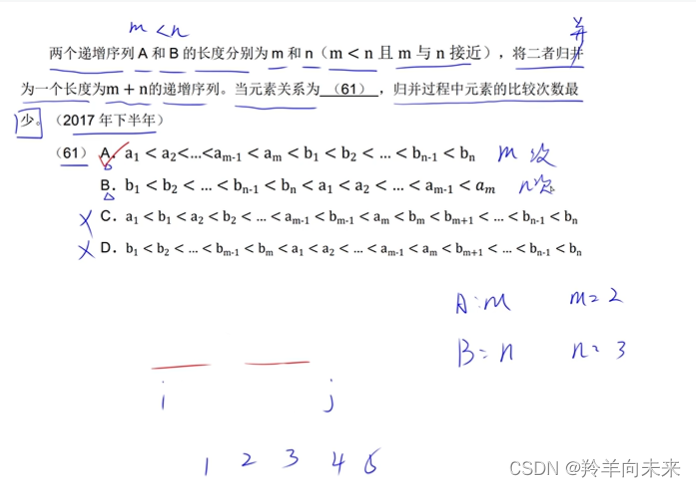 m < n
并
两个递增序列 A 和 B 的长度分别为 m 和 n（m < n 且 m 与 n 接近），将二者归并
为一个长度为m + n的递增序列。当元素关系为（61），归并过程中元素的比较次数最
少。（2017 年下半年）
(61) A. a₁ < a₂<...<aₘ₋₁ < aₘ < b₁ < b₂ < ... < bₙ₋₁ < bₙ m 次
B. b₁ < b₂ < ... < bₙ₋₁ < bₙ < a₁ < a₂ < ... < aₘ₋₁ < aₘ n次
C. a₁ < b₁ < a₂ < b₂ < ... < aₘ₋₁ < bₘ₋₁ < aₘ < bₘ < bₘ₊₁ < ... < bₙ₋₁ < bₙ
D. b₁ < b₂ < ... < bₘ₋₁ < bₘ < a₁ < a₂ < ... < aₘ₋₁ < aₘ < bₘ₊₁ < ... < bₙ₋₁ < bₙ
A:m m=2
B=n n=3
i j
1 2 3 4 5
CSDN @羚羊向未来